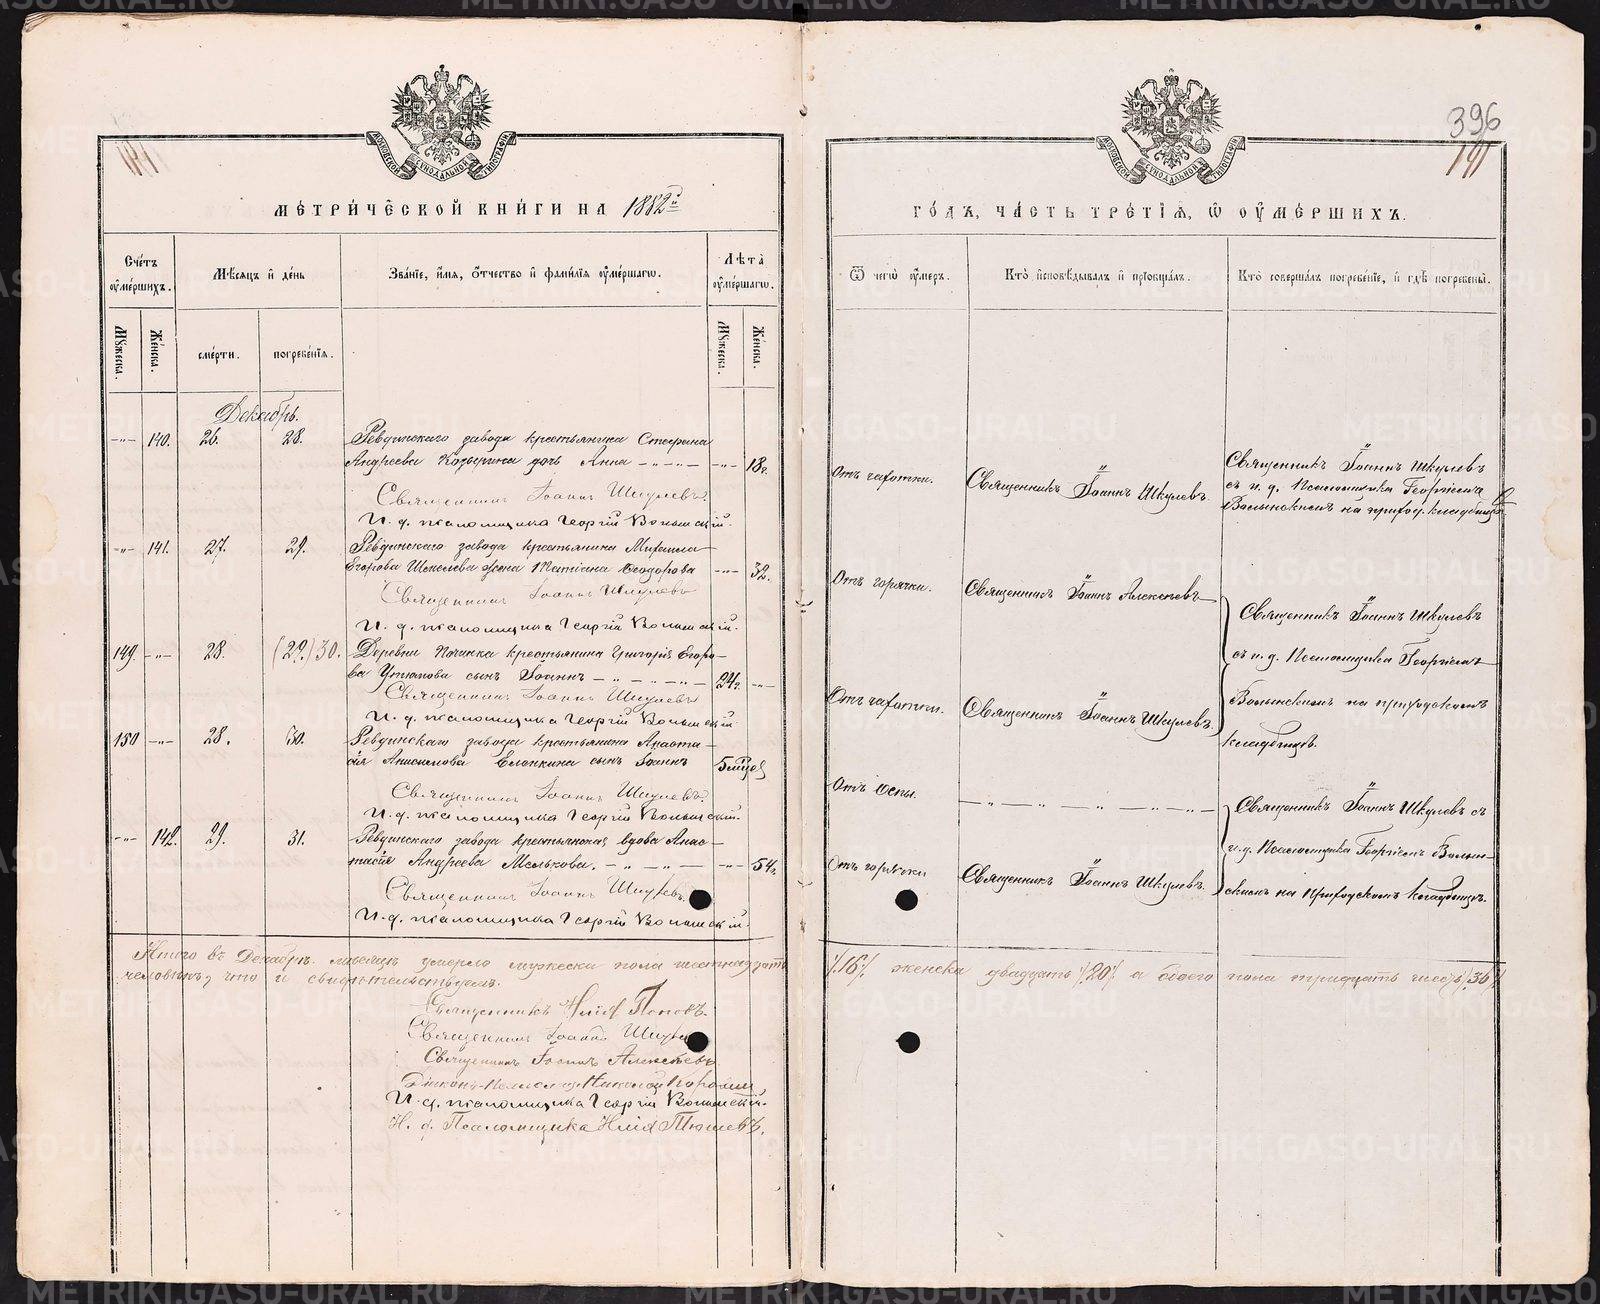 МОСКОВСКОЙ СѴНОДАЛЬНОЙ ТИПОГРАФІИ
МЕ́ТРИ́ЧЕСКОЙ КНИ́ГИ НА 1882й
Сче́тъ ᲂу҆ме́ршихъ.
Мѣ́сяцъ и҆ де́нь
Зва́нїе, и҆́мя, ѻ҆́тчество и҆ фами́лїя ᲂу҆ме́ршагѡ.
Лѣ́та ᲂу҆ме́ршагѡ.
Мꙋ́жеска.
Же́нска.
сме́рти.
погребе́нїя.
Мꙋ́жеска.
Же́нска.
Декабрь.
-"- 140. 26. 28. Ревдинскаго завода крестьянина Стефана
Андреева дочь Анна -"-"- -"- 18г.
Священникъ Іоаннъ Шкулевъ.
И. д. псаломщика Георгій Волынскій.
-"- 141. 27. 29. Ревдинскаго завода крестьянина Михаила
Егорова жена Татіана Ѳеодорова -"- 32.
Священникъ Іоаннъ Шкулевъ
И. д. псаломщика Георгій Волынскій.
149. -"- 28. (29.) 30. Деревни крестьянина Григорія Егоро-
ва Утюпова сынъ Іоаннъ -"-"-"- 24г. -"-
Священникъ Іоаннъ Шкулевъ
И. д. псаломщика Георгій Волынскій
150 -"- 28. 30. Ревдинскаго завода крестьянина
Анисимова сынъ Іоаннъ 5 мѣсяц.
Священникъ Іоаннъ Шкулевъ.
И. д. псаломщика Георгій Волынскій.
-"- 142. 29. 31. Ревдинскаго завода крестьянская вдова Анас-
тасія Андреева Мелькова. -"-"- -"- 54г.
Священникъ Іоаннъ Шкулевъ.
И. д. псаломщика Георгій Волынскій.
Итого въ Декабрѣ мѣсяцѣ умерло мужеска пола шестнадцать
человѣкъ, что и свидѣтельствуемъ.
Священникъ Илія Поповъ.
Священникъ Іоаннъ Шкулевъ
Священникъ Іоаннъ Алексѣевъ
Діаконъ Николай
И. д. псаломщика Георгій Волынскій.
И. д. Псаломщика Илія Тюшевъ.
396
191
МОСКОВСКОЙ СѴНОДАЛЬНОЙ ТИПОГРАФІИ
ГО́ДЪ, ЧА́СТЬ ТРЕ́ТІЯ, Ѡ҆ ОУ҆МЕ́РШИХЪ.
Ѿ чегѡ̀ ᲂу҆́меръ.
Кто̀ и҆сповѣ́дывалъ и҆ прїѡбща́лъ.
Кто̀ соверша́лъ погребе́нїе, и҆ гдѣ̀ погребены̀.
Отъ чахотки. Священникъ Іоаннъ Шкулевъ.
Священникъ Іоаннъ Шкулевъ
съ и. д. Псаломщика Георгіемъ
Волынскимъ на приход. кладбищѣ
Отъ горячки. Священникъ Іоаннъ Алексѣевъ
Священникъ Іоаннъ Шкулевъ
съ и. д. Псаломщика Георгіемъ
Волынскимъ на приходскомъ
кладбищѣ.
Отъ чахотки. Священникъ Іоаннъ Шкулевъ.
Отъ Оспы. -"-"-"-"-
Священникъ Іоаннъ Шкулевъ съ
и. д. Псаломщика Георгіемъ Волын-
скимъ на Приходскомъ кладбищѣ.
Отъ горячки Священникъ Іоаннъ Шкулевъ.
/.16./. женска двадцать /.20/. а обоего пола тридцать шесть /.36/.
METRIKI.GASO-URAL.RU